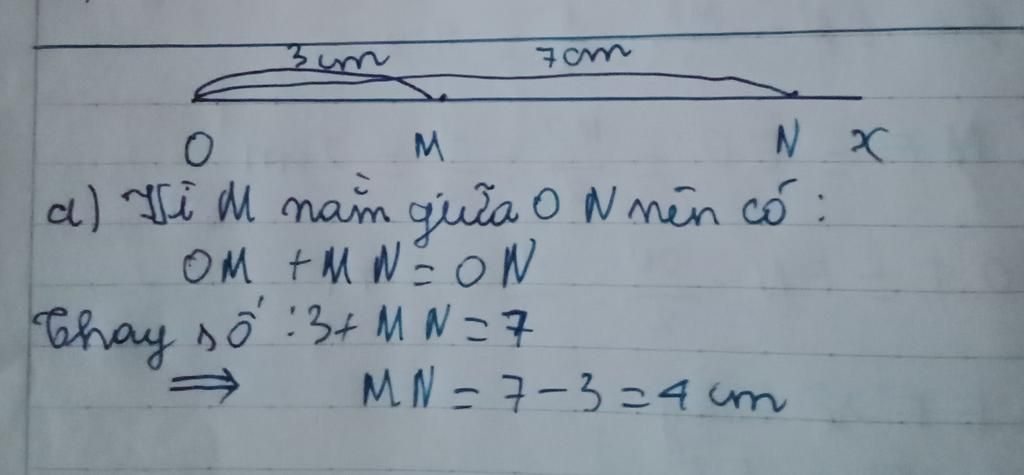 3cm 7cm
O M N x
a) Vì M nằm giữa O N nên có :
OM + MN = ON
Thay số : 3 + MN = 7
⇒ MN = 7 - 3 = 4 cm